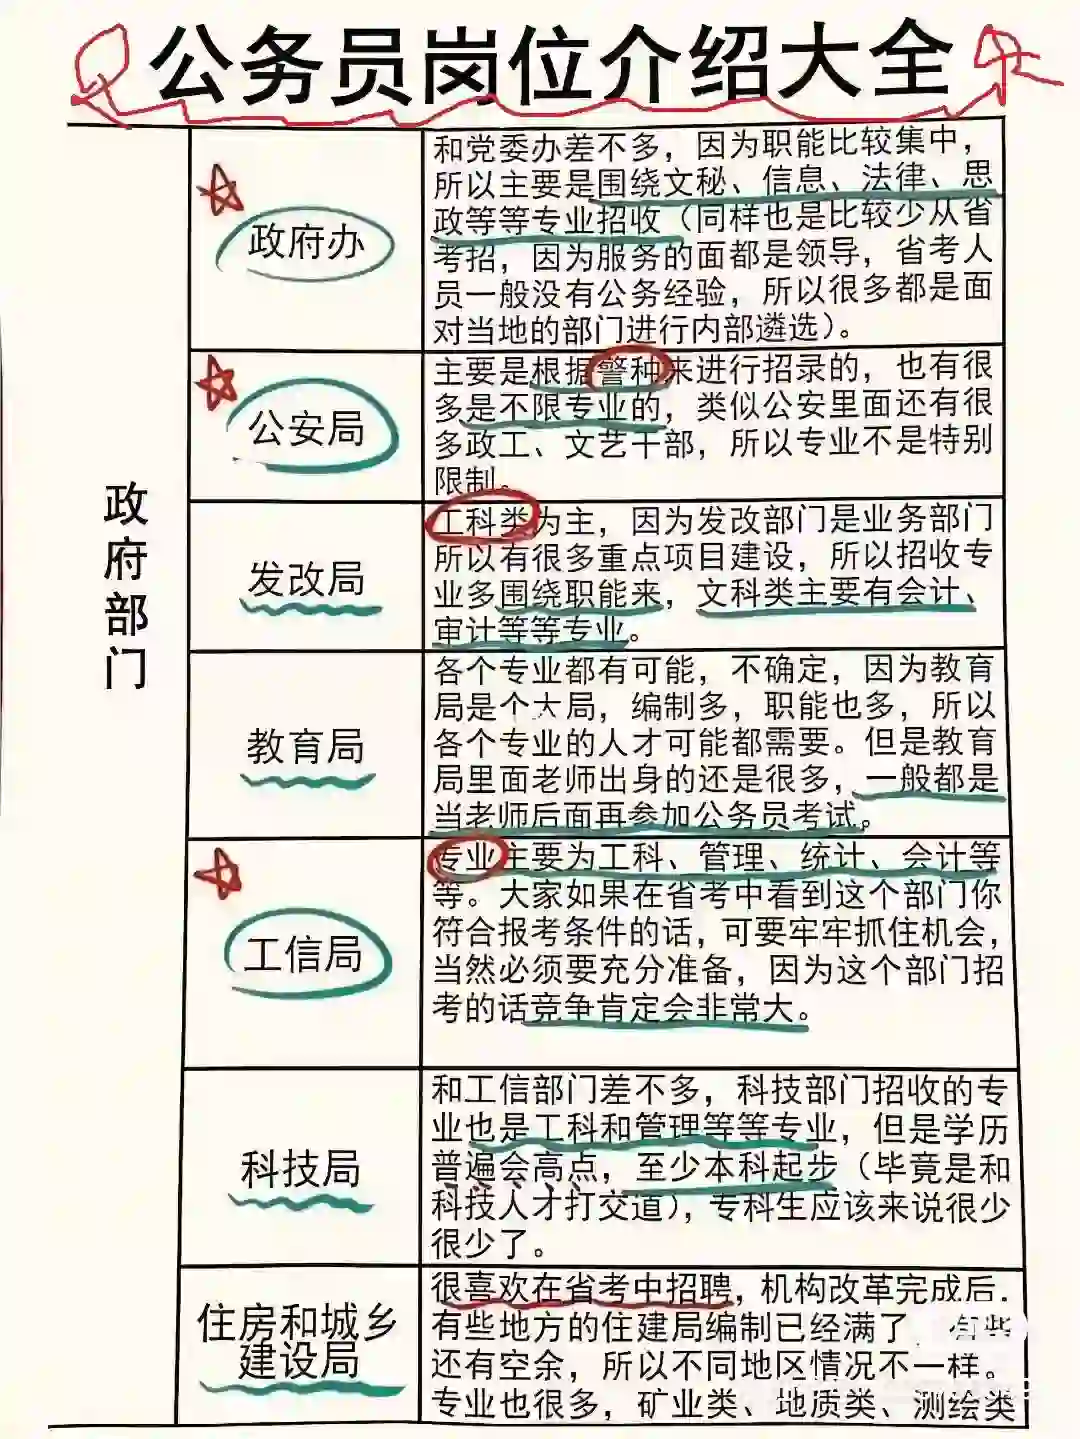 公务员岗位介绍大全
政府部门
政府办
和党委办差不多，因为职能比较集中，
所以主要是围绕文秘、信息、法律、思
政等等专业招收（同样也是比较少从省
考招，因为服务的面都是领导，省考人
员一般没有公务经验，所以很多都是面
对当地的部门进行内部遴选）。
公安局
主要是根据警种来进行招录的，也有很
多是不限专业的，类似公安里面还有很
多政工、文艺干部，所以专业不是特别
限制。
发改局
工科类为主，因为发改部门是业务部门
所以有很多重点项目建设，所以招收专
业多围绕职能来，文科类主要有会计、
审计等等专业。
教育局
各个专业都有可能，不确定，因为教育
局是个大局，编制多，职能也多，所以
各个专业的人才可能都需要。但是教育
局里面老师出身的还是很多，一般都是
当老师后面再参加公务员考试。
工信局
专业主要为工科、管理、统计、会计等
等。大家如果在省考中看到这个部门你
符合报考条件的话，可要牢牢抓住机会，
当然必须要充分准备，因为这个部门招
考的话竞争肯定会非常大。
科技局
和工信部门差不多，科技部门招收的专
业也是工科和管理等等专业，但是学历
普遍会高点，至少本科起步（毕竟是和
科技人才打交道），专科生应该来说很少
很少了。
住房和城乡
建设局
很喜欢在省考中招聘，机构改革完成后，
有些地方的住建局编制已经满了，有些
还有空余，所以不同地区情况不一样。
专业也很多，矿业类、地质类、测绘类